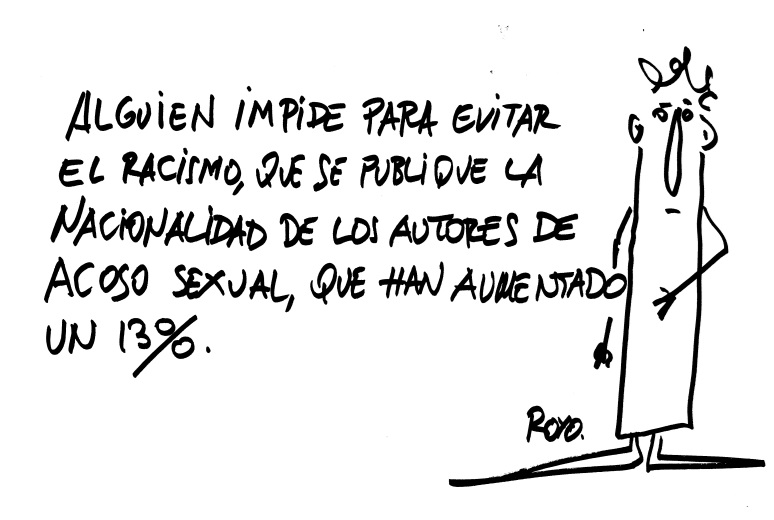 ALGUIEN IMPIDE PARA EVITAR
EL RACISMO, QUE SE PUBLIQUE LA
NACIONALIDAD DE LOS AUTORES DE
ACOSO SEXUAL, QUE HAN AUMENTADO
UN 13%.
ROYO.